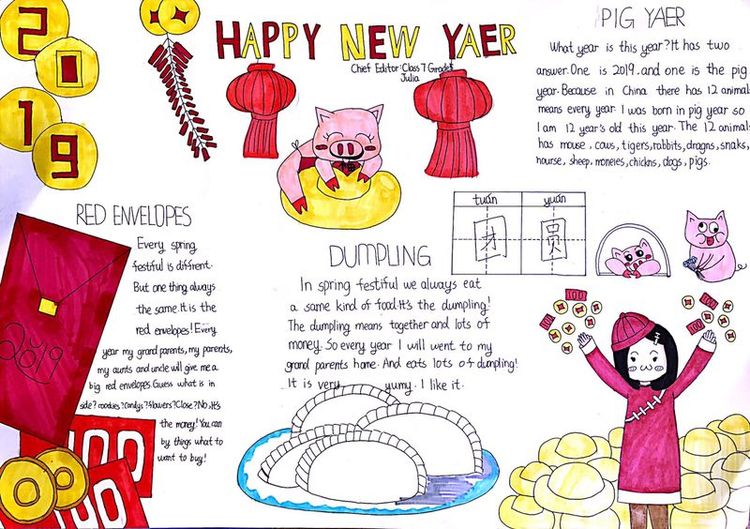 2019
HAPPY NEW YAER
Chief Editor:Class 7 Grade5
Julia
PIG YAER
What year is this year?It has two
answer.One is 2019.and one is the pig
year.Because in China there has 12 animals
means every year I was born in pig year so
I am 12 year's old this year. The 12 animals
has mouse, cows, tigers,rabbits, dragns, snaks,
hourse, sheep, moneies, chickns, dogs, pigs.
tuán yuán
团 圆
RED ENVELOPES
Every spring
festiful is diffirent.
But one thing always
the same.It is the
red envelopes! Every
year my grand parents, my parents,
my aunts and uncle will give me a
big red envelopes.Guess what is in
side? coookies?Candys?Flowers?Close?No.It's
the money! You can
by things what to
want to buy!
2019
100
100
DUMPLING
In spring festiful we always eat
a same kind of food.It's the dumpling!
The dumpling means together and lots of
money. So every year I will went to my
grand parents home. And eats lots of dumpling!
It is very yumy. I like it.
100
100